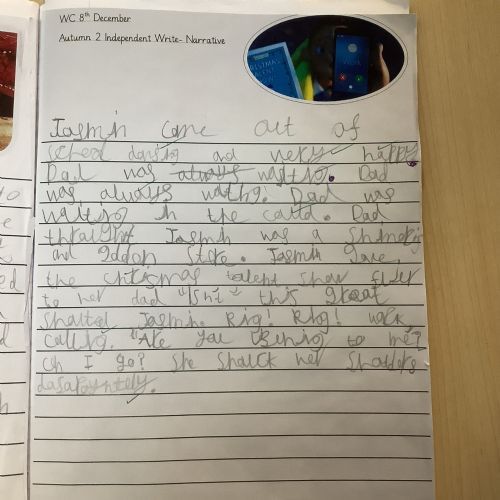 WC 8th December
Autumn 2 Independent Write- Narrative
Work
Jasmin came out of
school dansing and verry happy.
Dad was always waiting. Dad
was always waiting. Dad was
waiting in the cold. Dad
thought Jasmin was a
and Stare. Jasmin gave
the chrismas talent show flider
to her dad "Isn't this great
shalted Jasmin. Rig! Rig! work
calling. "Are you lisening to me?
oh I go? She shauck her shalders
dasapyntely.